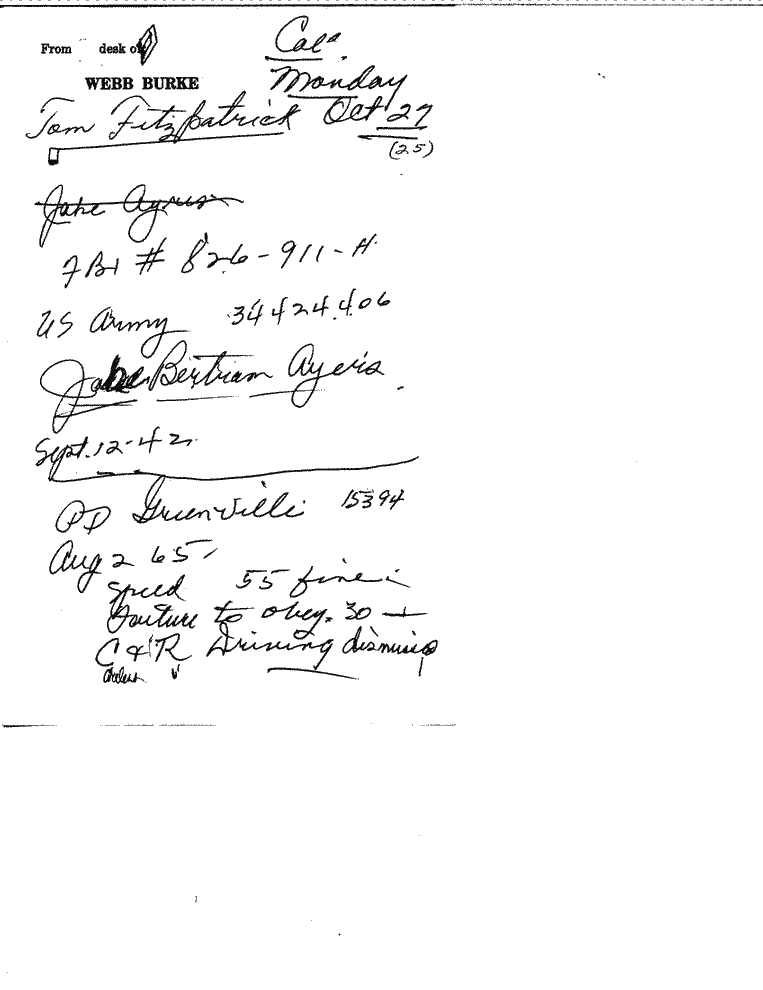 From desk of
WEBB BURKE
Cal.
Monday
Tom Fitzpatrick Oct 27
(25)
Jake Ayers
FBI # 826-911-H
US Army 34424406
Bertram Ayers
Sept. 12-42
PD Greenville 15394
Aug 2 65
Speed 55 fine
Failure to obey. 30
C & R Driving dismiss